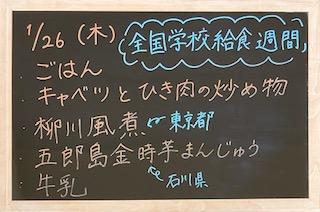 1/26(木) 全国学校給食週間
ごはん
・キャベツとひき肉の炒め物
・柳川風煮 東京都
・五郎島金時芋まんじゅう
・牛乳 石川県